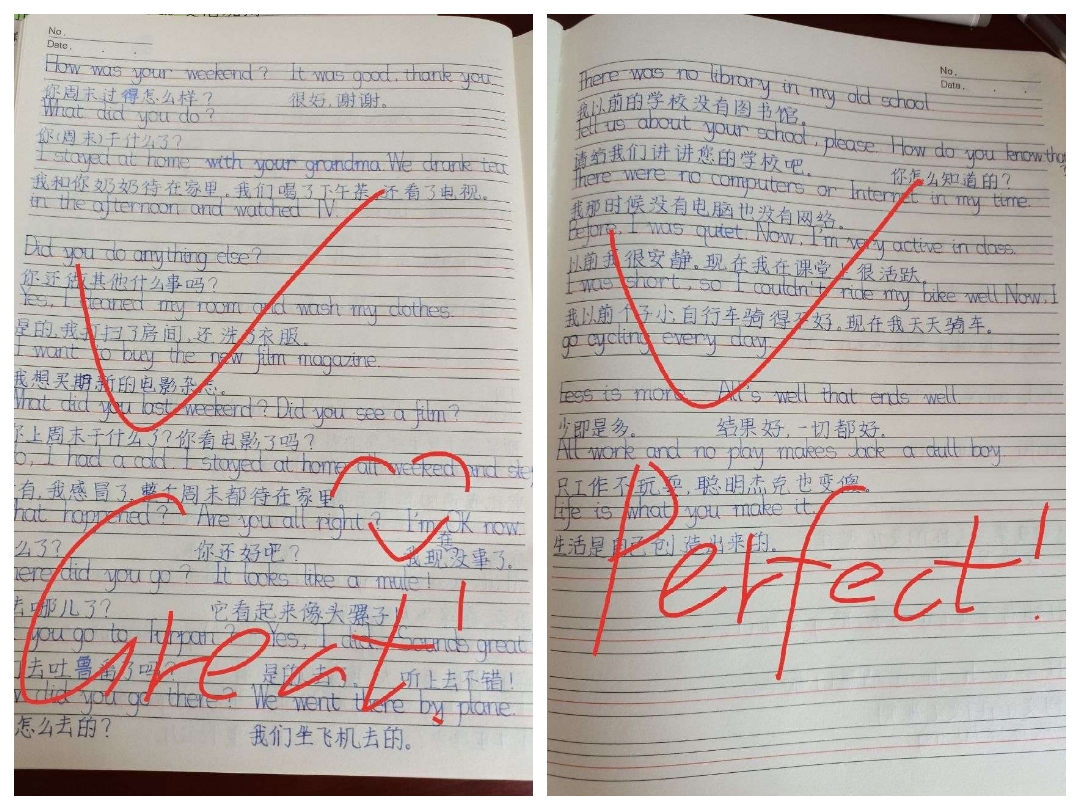 No.
Date.
How was your weekend? It was good, thank you
你周末过得怎么样? 很好,谢谢。
What did you do?
你(周末)干什么了?
I stayed at home with your grandma. We drank tea
我和你奶奶待在家里。我们喝了下午茶,还看了电视。
in the afternoon and watched TV.
Did you do anything else?
你还做其他什么事吗?
Yes, I cleaned my room and wash my clothes.
是的,我打扫了房间,还洗了衣服。
I want to buy the new film magazine.
我想买期新的电影杂志。
What did you last weekend? Did you see a film?
你上周末干什么了?你看电影了吗?
o, I had a cold. I stayed at home all weeked and sle
有,我感冒了,整个周末都待在家里
hat happened? Are you all right? I'm OK now.
么了? 你还好吧? 我现在没事了。
here did you go? It looks like a mule!
去哪儿了? 它看起来像头骡子!
you go to Turpan? Yes, I did. Sounds great
去吐鲁番了吗? 是的,去了。 听上去不错!
did you go there? We went there by plane.
怎么去的? 我们坐飞机去的。
Great!
No.
Date.
There was no library in my old school
我以前的学校没有图书馆。
Tell us about your school, please How do you know that
请给我们讲讲您的学校吧。 你怎么知道的?
There were no computers or Internet in my time.
我那时候没有电脑也没有网络。
Before, I was quiet. Now, I'm very active in class.
以前我很安静。现在我在课堂上很活跃。
I was short, so I couldn't ride my bike well. Now, I
我以前个子小,自行车骑得不好。现在我天天骑车。
go cycling every day.
Less is more. All's well that ends well.
少即是多。 结果好,一切都好。
All work and no play makes Jack a dull boy.
只工作不玩耍,聪明杰克也变傻。
Life is what you make it.
生活是自己创造出来的。
Perfect!